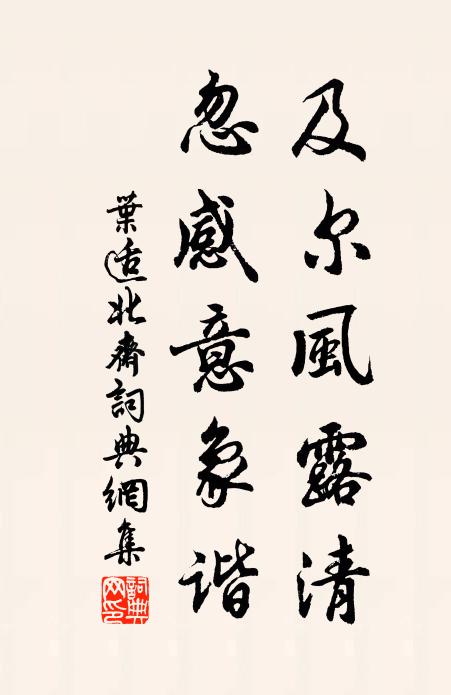 及尔風露清
忽感意象谐
葉适北齋詞典網集
詞典
网印